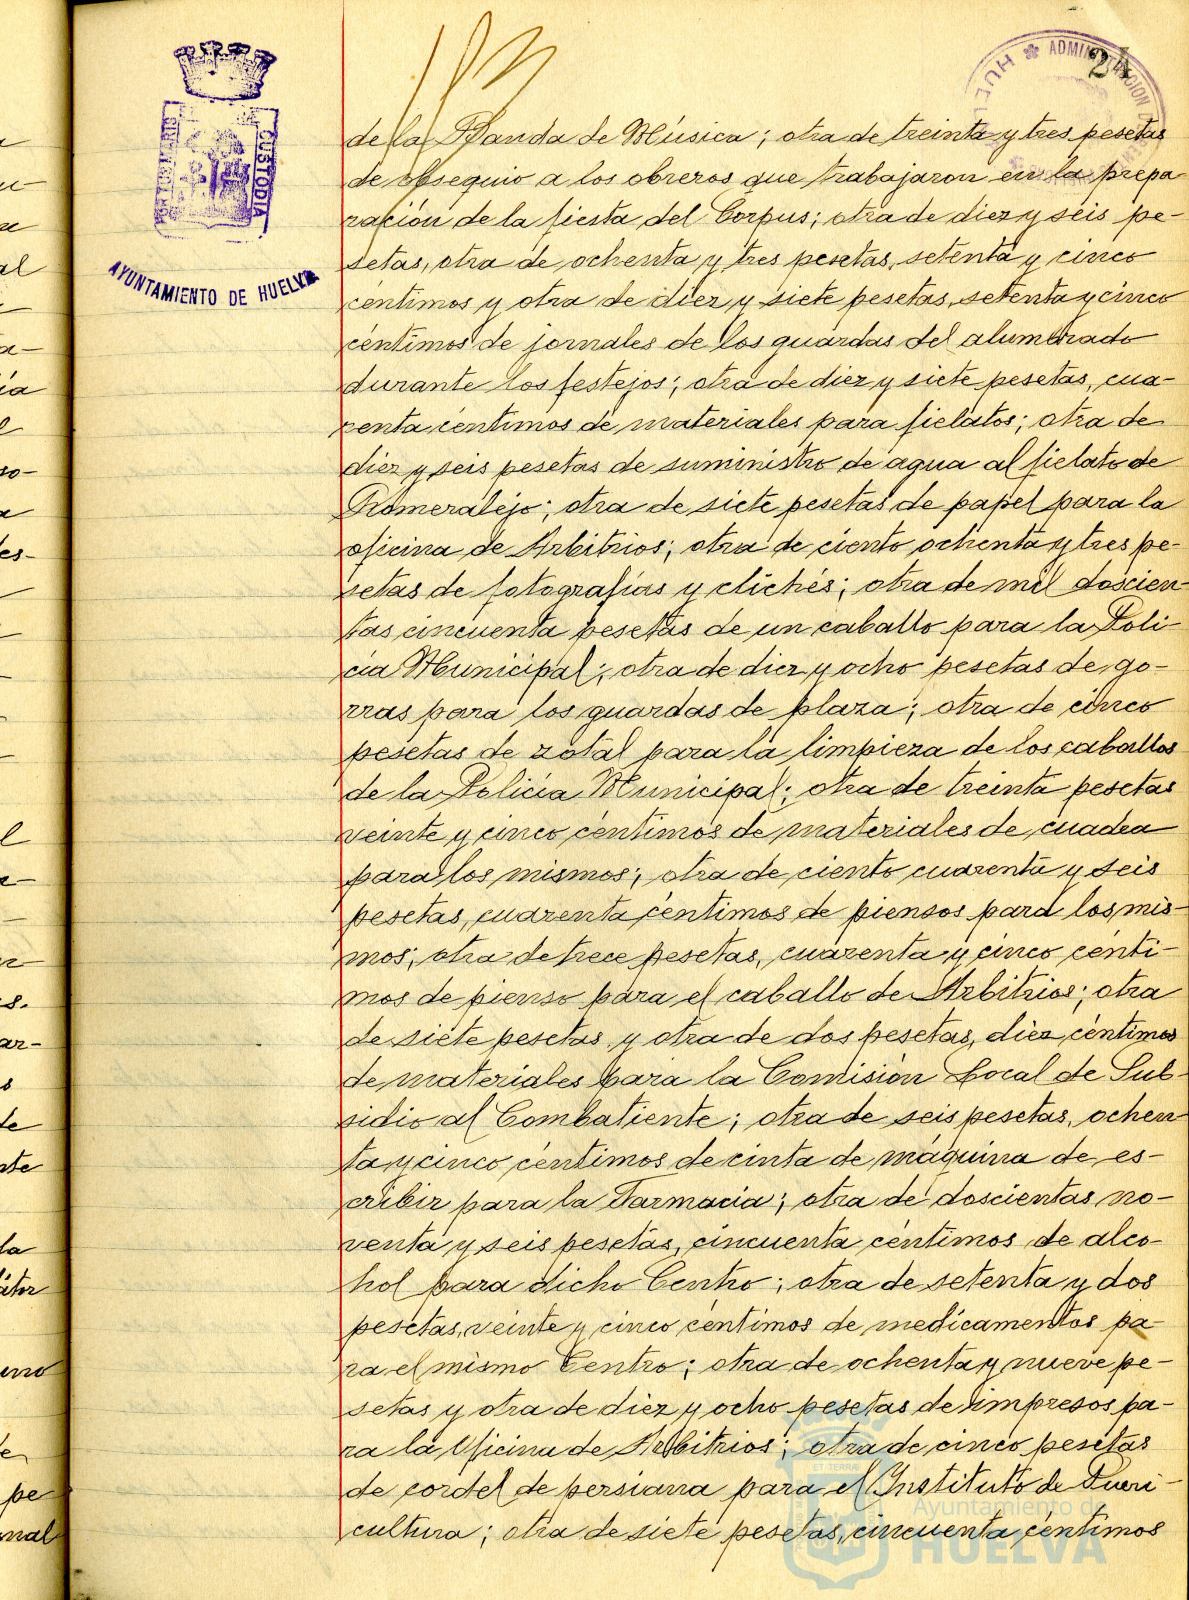 ADMINISTRACION
HUEL
24
CUSTODIA
AYUNTAMIENTO DE HUELVA
de la Banda de Música; otra de treinta y tres pesetas
de obsequio a los obreros que trabajaron en la prepa
ración de la fiesta del Corpus; otra de diez y seis pe-
setas, otra de ochenta y tres pesetas, setenta y cinco
céntimos y otra de diez y siete pesetas, setenta y cinco
céntimos de jornales de los guardas del alumbrado
durante los festejos; otra de diez y siete pesetas, cua-
renta céntimos de materiales para fielatos; otra de
diez y seis pesetas de suministro de agua al fielato de
Romeralejo; otra de siete pesetas de papel para la
oficina de Arbitrios; otra de ciento ochenta y tres pe-
setas de fotografías y clichés; otra de mil doscien-
tas cincuenta pesetas de un caballo para la Poli-
cía Municipal; otra de diez y ocho pesetas de go-
rras para los guardas de plaza; otra de cinco
pesetas de zotal para la limpieza de los caballos
de la Policía Municipal; otra de treinta pesetas
veinte y cinco céntimos de materiales de cuadra
para los mismos; otra de ciento cuarenta y seis
pesetas, cuarenta céntimos de piensos para los mis-
mos; otra de trece pesetas, cuarenta y cinco cénti-
mos de pienso para el caballo de Arbitrios; otra
de siete pesetas y otra de dos pesetas, diez céntimos
de materiales para la Comisión Local de Sub-
sidio al Combatiente; otra de seis pesetas, ochen
ta y cinco céntimos de cinta de máquina de es-
cribir para la Farmacia; otra de doscientas no-
venta y seis pesetas, cincuenta céntimos de alco-
hol para dicho Centro; otra de setenta y dos
pesetas, veinte y cinco céntimos de medicamentos pa-
ra el mismo Centro; otra de ochenta y nueve pe-
setas y otra de diez y ocho pesetas de impresos pa-
ra la Oficina de Arbitrios; otra de cinco pesetas
de cordel de persiana para el Instituto de Pueri-
cultura; otra de siete pesetas, cincuenta céntimos
Ayuntamiento de
HUELVA